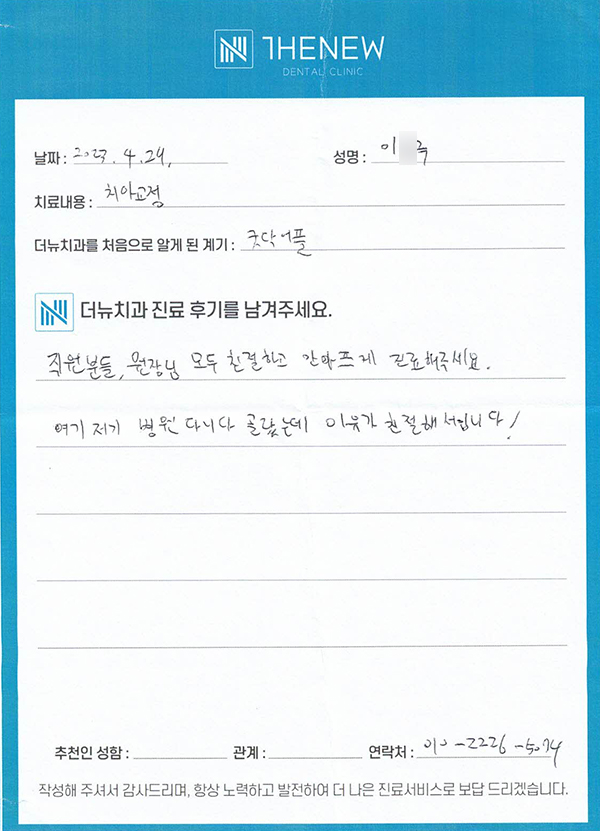 THENEW
DENTAL CLINIC
날짜 : 2023. 4. 24,
성명 : 이 국
치료내용 : 치아교정
더뉴치과를 처음으로 알게 된 계기 : 굿닥어플
더뉴치과 진료 후기를 남겨주세요.
직원분들, 원장님 모두 친절하고 안아프게 진료해주세요.
여기 저기 병원 다니다 골랐는데 이유가 친절해서입니다!
추천인 성함 : 관계 : 연락처 : 010-2226-5074
작성해 주셔서 감사드리며, 항상 노력하고 발전하여 더 나은 진료서비스로 보답 드리겠습니다.